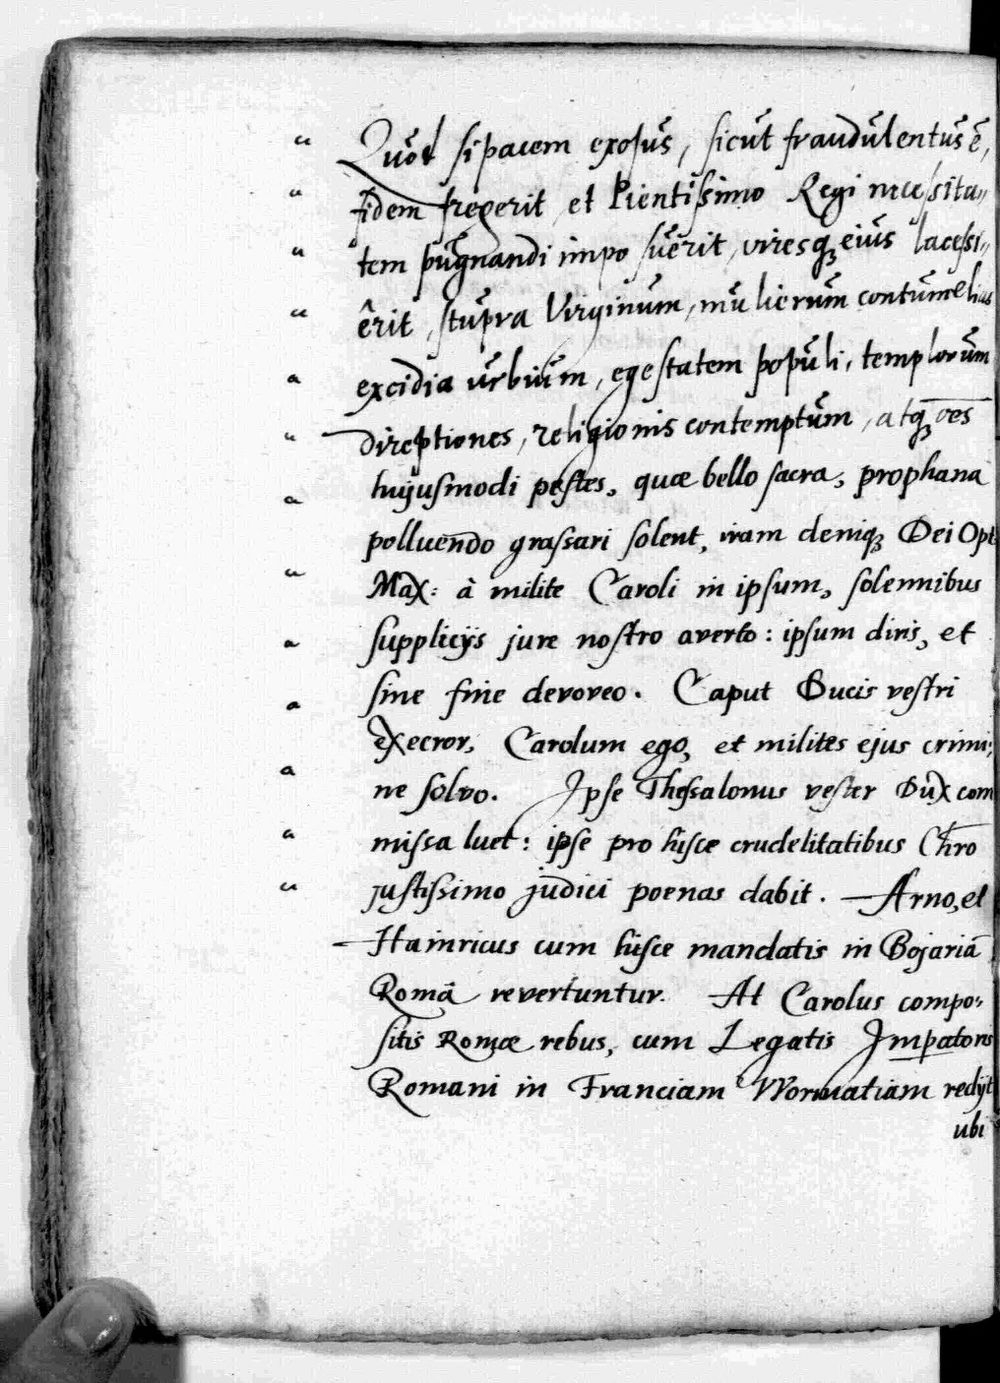 “ Quod si pacem exosus, sicut fraudulentus ē,
“ fidem fregerit, et Pientissimo Regi necessita„
“ tem pugnandi imposuerit, viresq₃ eius lacessi„
“ erit, stupra Virginum, mulierum contumelias
“ excidia urbium, egestatem populi, templorum
“ direptiones, religionis contemptum, atq₃ oēs
“ hujusmodi pestes, quæ bello sacra, prophana
“ polluendo grassari solent, iram deniq₃ Dei Opt
“ Max: à milite Caroli in ipsum, solennibus
“ supplicijs jure nostro averto: ipsum diris, et
“ sine fine devoveo. Caput Ducis vestri
“ execror, Carolum ego, et milites ejus crimi„
“ ne solvo. Ipse Thessalonus vester Dux com
“ missa luet: ipse pro hisce crudelitatibus Chr̄o
“ justissimo judici poenas dabit. — Arno, et
— Hainricus cum hisce mandatis in Bojariā
Romā revertuntur. At Carolus compo„
sitis Romæ rebus, cum Legatis Imp̱atoris
Romani in Franciam Wormatiam redijt
ubi